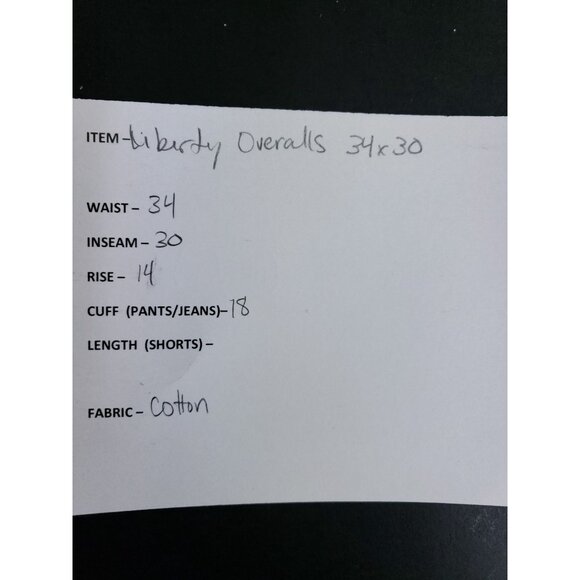 ITEM - Liberty Overalls 34x30
WAIST - 34
INSEAM - 30
RISE - 14
CUFF (PANTS/JEANS)- 18
LENGTH (SHORTS) -
FABRIC - Cotton